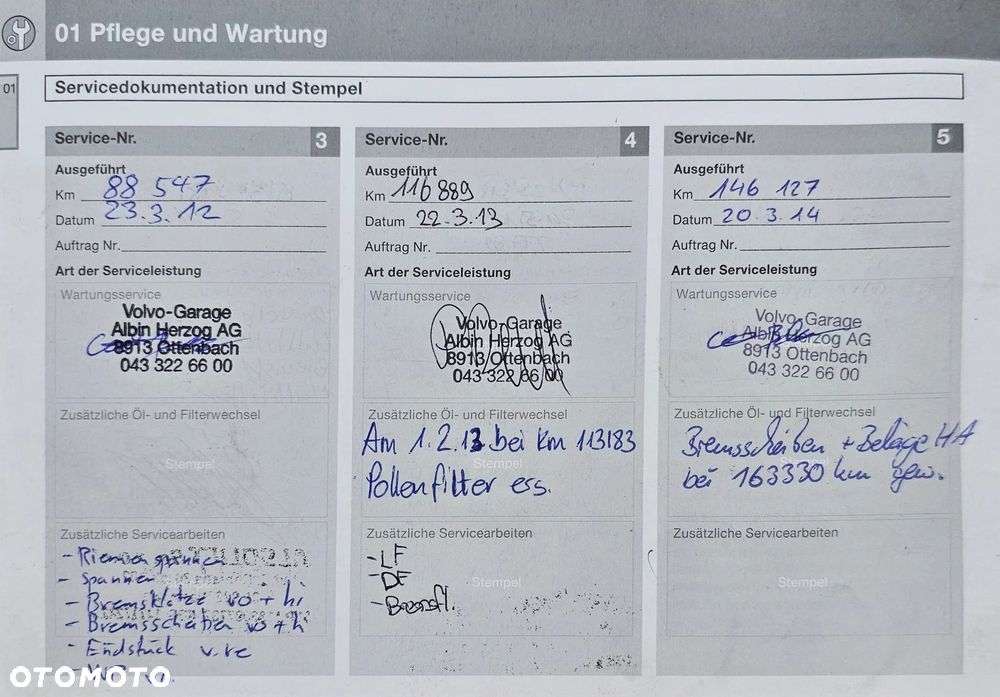 01 Pflege und Wartung
01
Servicedokumentation und Stempel
Service-Nr. 3
Ausgeführt
Km 88 547
Datum 23.3.12
Auftrag Nr.
Art der Serviceleistung
Wartungsservice
Volvo-Garage
Albin Herzog AG
8913 Ottenbach
043 322 66 00
Zusätzliche Öl- und Filterwechsel
Stempel
Zusätzliche Servicearbeiten
- Riemen spannen
- spannen
- Bremsklötze vo + hi
- Bremsscheiben vo + hi
- Endstück v.re
Service-Nr. 4
Ausgeführt
Km 116 889
Datum 22.3.13
Auftrag Nr.
Art der Serviceleistung
Wartungsservice
Volvo-Garage
Albin Herzog AG
8913 Ottenbach
043 322 66 00
Zusätzliche Öl- und Filterwechsel
Am 1.2.13 bei Km 113183
Stempel
Pollenfilter ers.
Zusätzliche Servicearbeiten
- LF
- DF
Stempel
- Bremsfl.
Service-Nr. 5
Ausgeführt
Km 146 127
Datum 20.3.14
Auftrag Nr.
Art der Serviceleistung
Wartungsservice
Volvo-Garage
Albin Herzog AG
8913 Ottenbach
043 322 66 00
Zusätzliche Öl- und Filterwechsel
Bremsscheiben + Beläge HA
Stempel
bei 163330 km gew.
Zusätzliche Servicearbeiten
Stempel
OTOMOTO